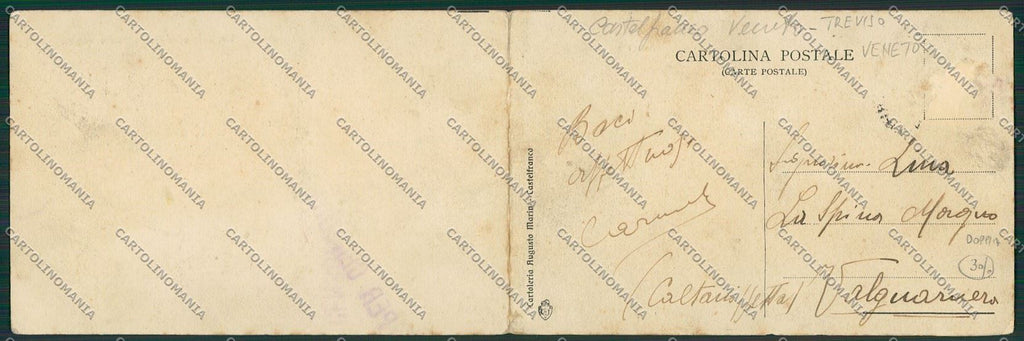 Castelfranco Veneto - TREVISO
VENETO
CARTOLINA POSTALE
(CARTE POSTALE)
Baci
affettuosi
Cartoleria Augusto Marin - Castelfranco
Lina
La Spina Morgno
DOPPIA
30/
(Caltanissetta) Valguarnera
PER
CARTOLINOMANIA